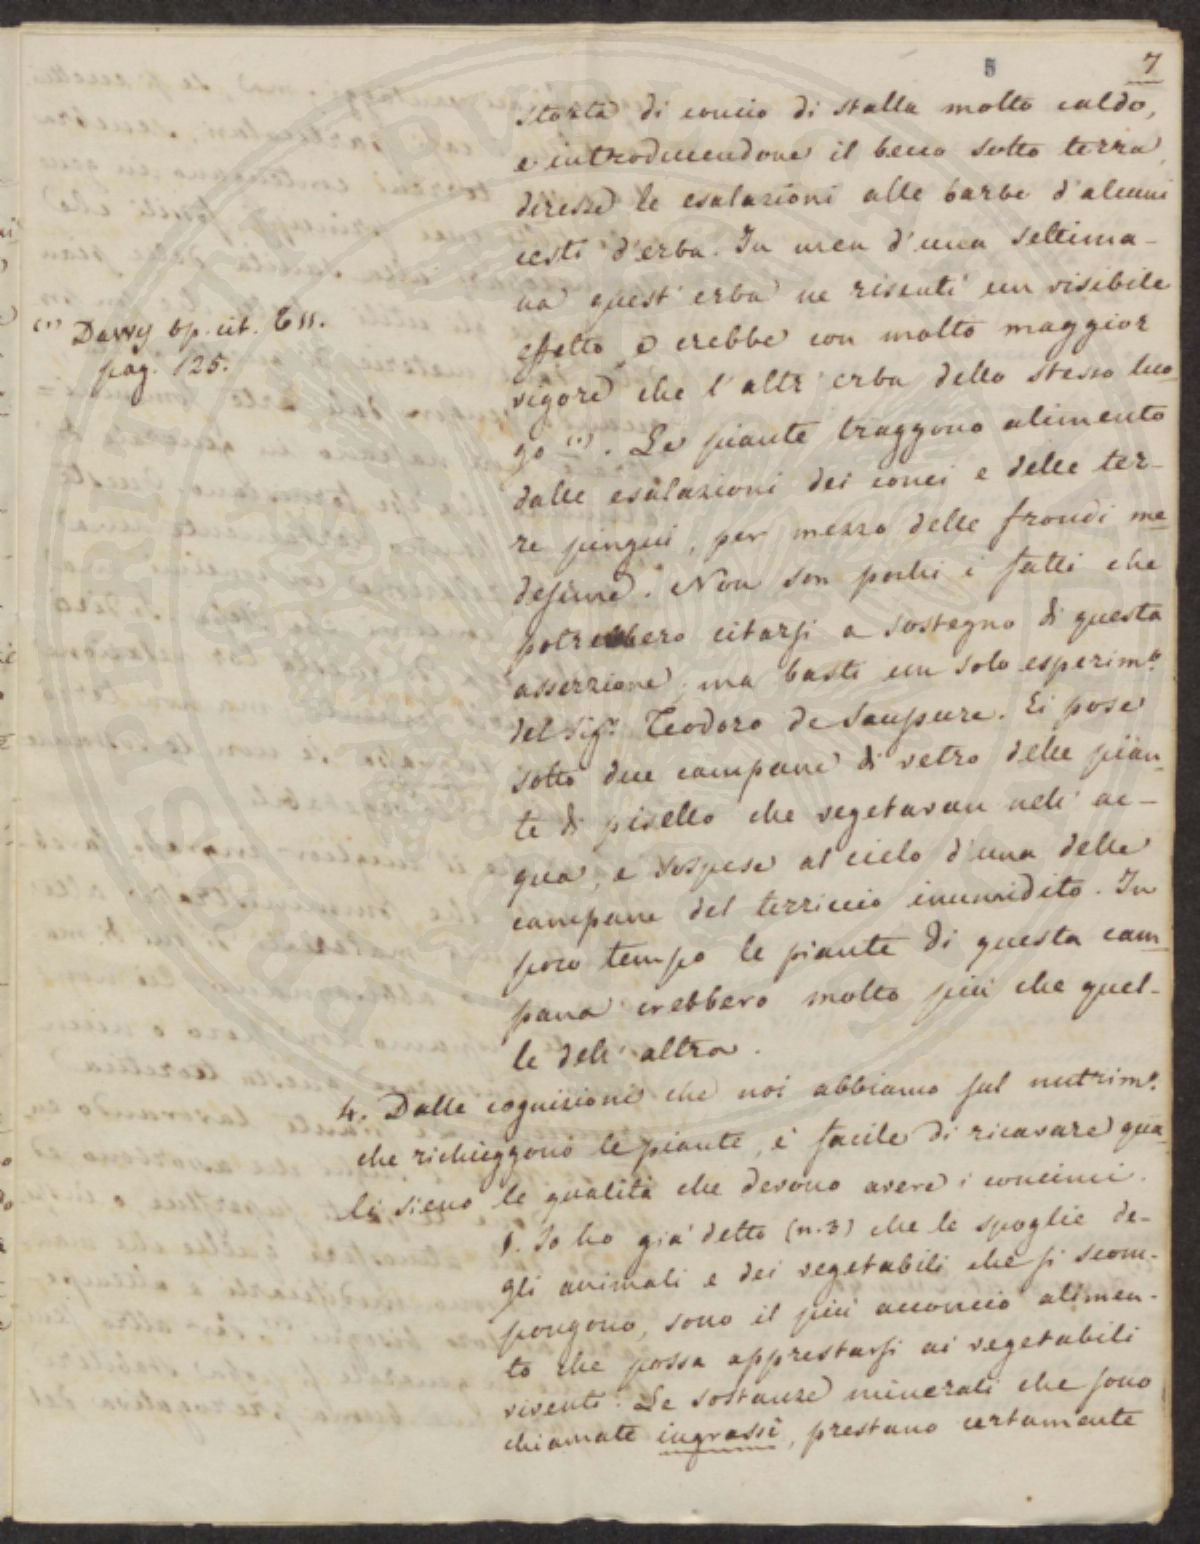 5
7
storta di concio di stalla molto caldo,
e introducendone il becco sotto terra,
diresse le esalazioni alle barbe d'alcuni
cesti d'erba. In men d'una settima-
na quest'erba ne risentì un visibile
effetto e crebbe con molto maggior
vigore che l'altr'erba dello stesso luo
go (1). Le piante traggono alimento
dalle esalazioni dei conci e delle ter-
re pingui, per mezzo delle frondi me
desime. Non son pochi i fatti che
potrebbero citarsi a sostegno di questa
asserzione, ma basti un solo esperim.o
del Sig.r Teodoro de Saupure. Ei pose
sotto due campane di vetro delle pian
te di pisello che vegetavan nell'ac-
qua, e sospese al cielo d'una delle
campane del terriccio inumidito. In
poco tempo le piante di questa cam
pana crebbero molto più che quel-
le dell'altra.
(1) Davvy op. cit. T II.
pag. 125.
4. Dalle cognizioni che noi abbiamo sul nutrim.o
che richieggono le piante, è facile di ricavare qua
li sieno le qualità che devono avere i concimi.
I. Io ho già detto (n. 3) che le spoglie de-
gli animali e dei vegetabili che si scom-
pongono, sono il più acconcio alimen-
to che possa apprestarsi ai vegetabili
viventi. Le sostanze minerali che sono
chiamate ingrassi, prestano certamente